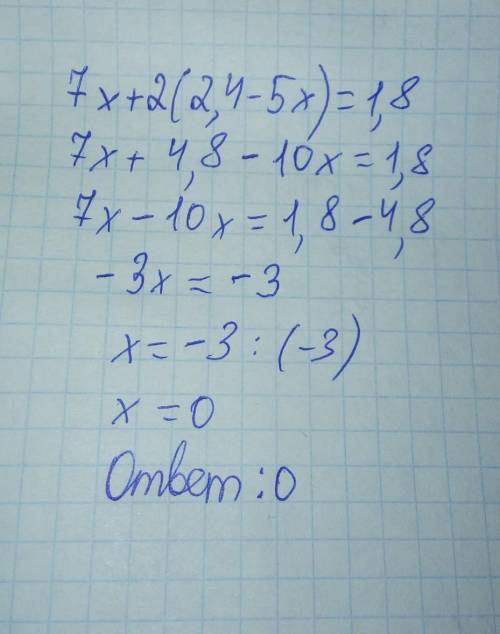 7x+2(2,4-5x)=1,8
7x+4,8-10x=1,8
7x-10x=1,8-4,8
-3x=-3
x=-3:(-3)
x=0
Ответ:0